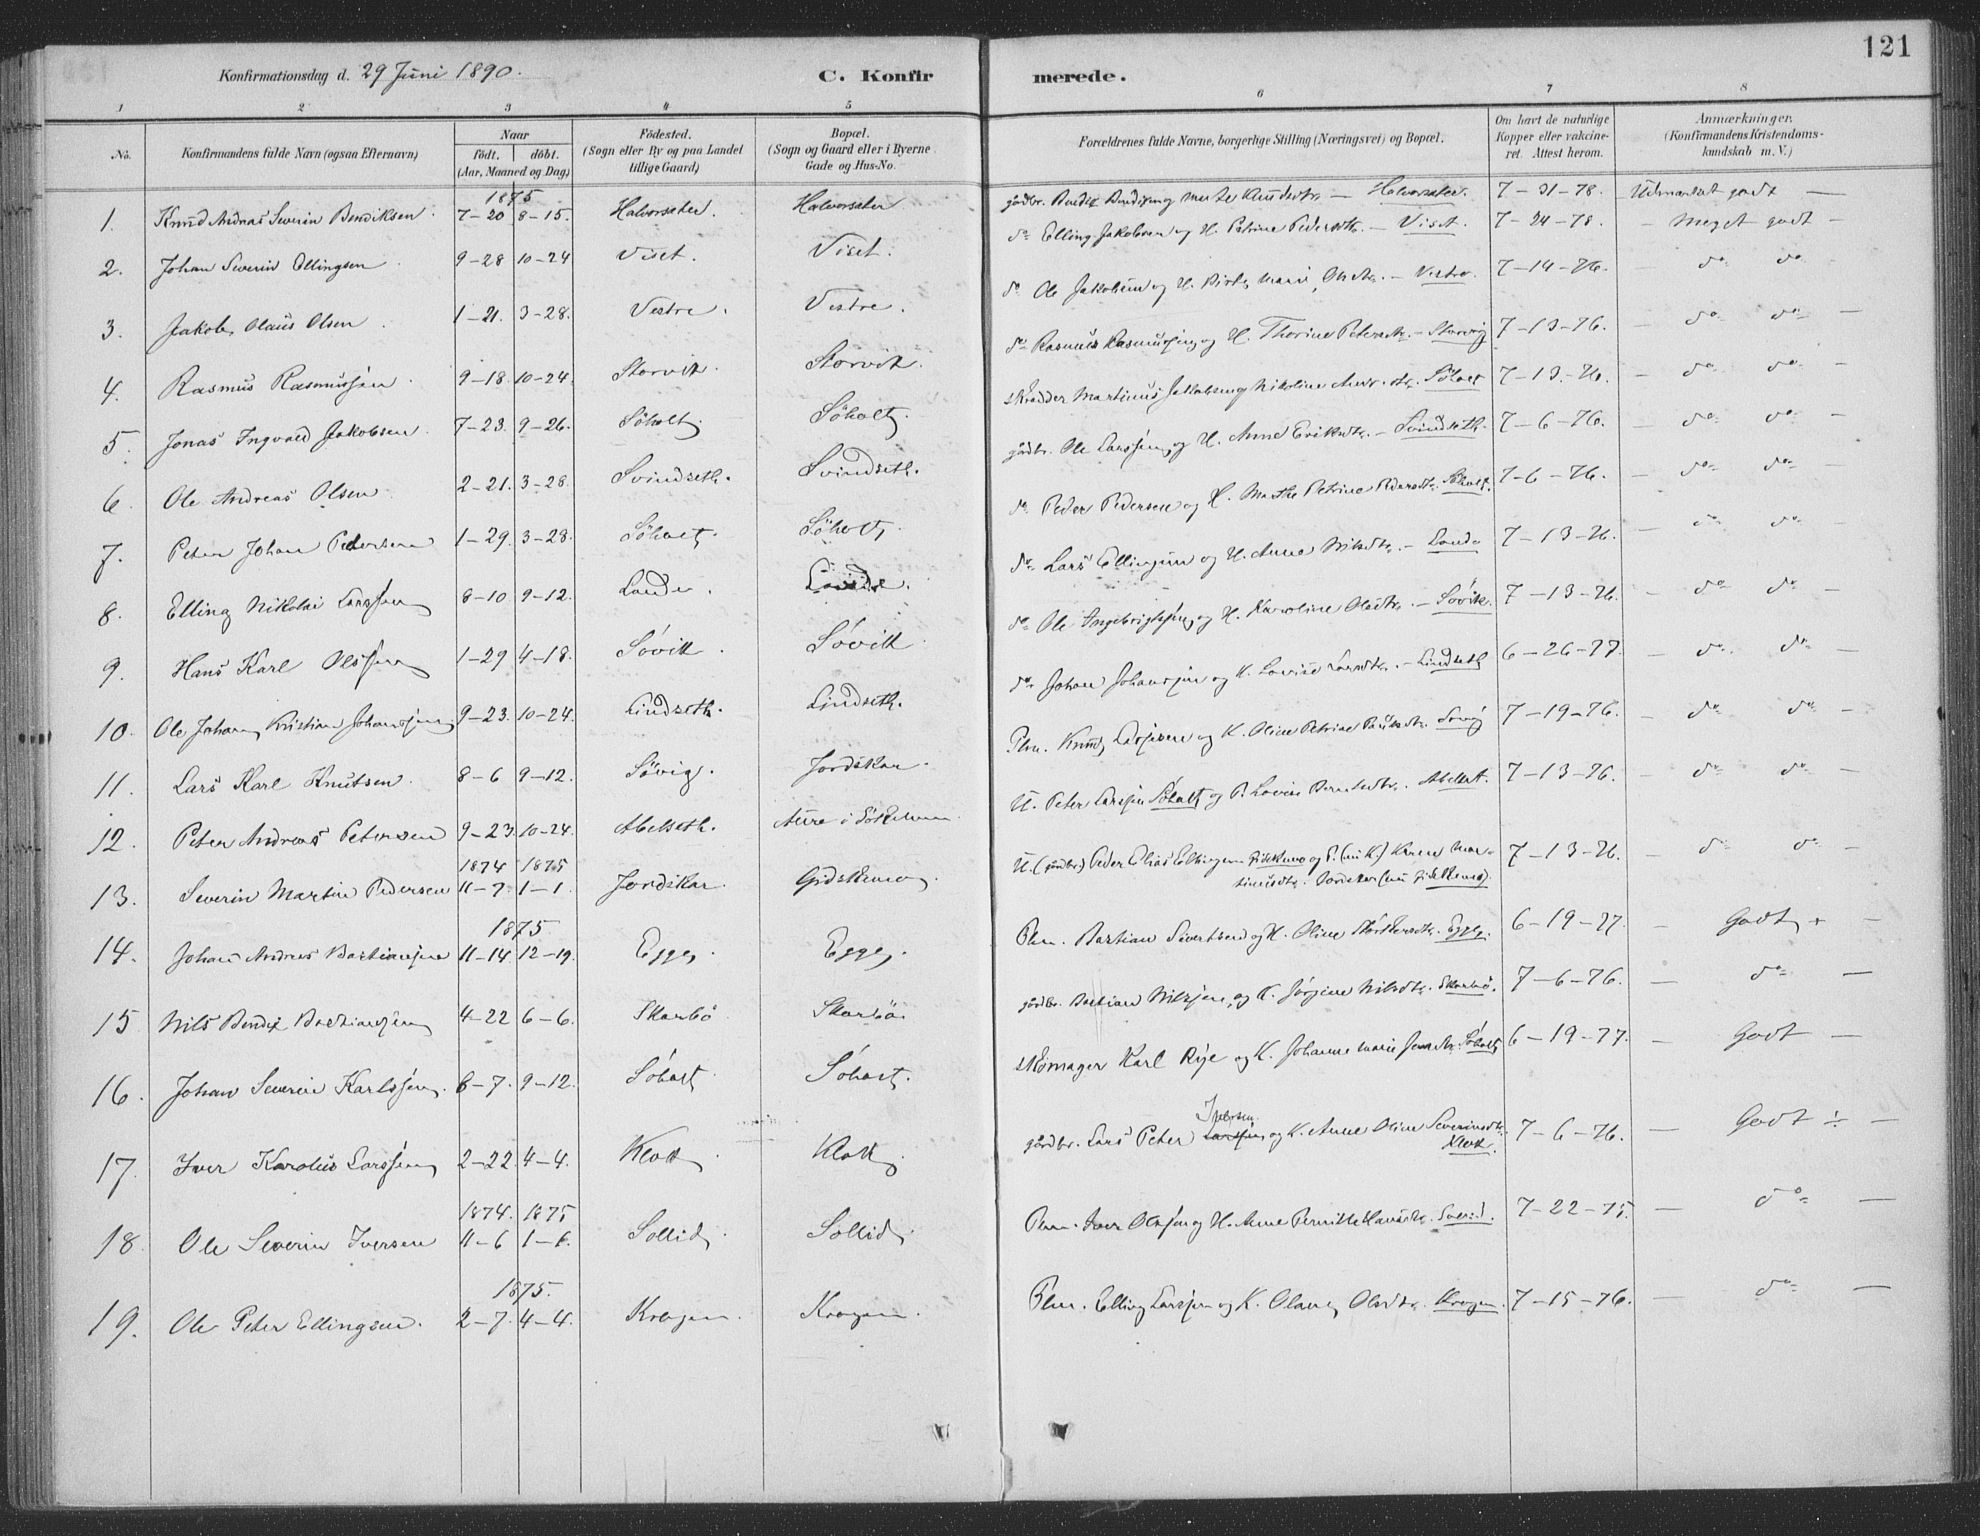 121
Konfirmationsdag d. 29 Juni 1890. C. Konfir merede.
1 2 3 4 5 6 7 8
No. Konfirmandens fulde Navn (ogsaa Efternavn) Naar födt. döbt. (Aar, Maaned og Dag) Födested. (Sogn eller By og paa Landet tillige Gaard) Bopæl. (Sogn og Gaard eller i Byerne Gade og Hus-No. Forældrenes fulde Navne, borgerlige Stilling (Næringsvei) og Bopæl. Om havt de naturlige Kopper eller vakcineret. Attest herom. Anmærkninger. (Konfirmandens Kristendomskundskab m. V.)
1875
1. Knud Andreas Severin Bendiksen. 7-20 8-15. Halvorsæter. Halvorsæter gårdbr. Bendix Bendixen og Marte Knudsdtr. — Halvorsæter. 7-31-78. Udmærket godt —
2. Johan Severin Ellingsen 9-28 10-24 Viset. Viset. do Elling Jakobsen og H. Petrine Pedersdtr. — Viset. 7-24-78. — Meget godt —
3. Jakob Olaus Olsen 1-21. 3-28. Vestre. Vestre. do Ole Jakobsen og H. Marie Olsdtr. — Vestre. 7-19-76. — do do
4. Rasmus Rasmussen 9-18. 10-24. Storvik. Storvik. do Rasmus Rasmussen og H. Thorine Petersdtr. — Storvig 7-13-76. — do do —
5. Jonas Ingvald Jakobsen. 7-23. 9-26. Söholt. Söholt. skrædder Martinus Jakobsen og Nikoline Söholt 7-13-76. — do do —
6. Ole Andreas Olsen 2-21. 3-28. Svindseth. Svindseth. gårdbr. Ole Larssen og H. Anne Eriksdtr. — Svindseth. 7-6-76. — do do —
7. Peter Johan Petersen 1-29. 3-28. Söholt. Söholt. do Peder Pedersen og H. Marthe Petrine Pedersdtr. Söholt. 7-6-76. — do do —
8. Elling Nikolai Larssen 8-10 9-12. Lande. Lande. do Lars Ellingsen og H. Anne Nilsdtr. — Lande 7-13-76. — do do —
9. Hans Karl Olssen 1-29 4-18. Sövik. Sövik. do Ole Ingebrigtsen og H. Karoline Olsdtr. — Sövik. 7-13-76. — do do —
10. Ole Johan Kristian Johanssen 9-23. 10-24. Lindseth. Lindseth. do Johan Johanssen og K. Lovise Larsdtr. — Lindseth 6-26-77. — do do —
11. Lars Karl Knutsen. 8-6 9-12. Sövig. Jordskar. Plm. Knud Larssen og K. Oline Petrine Paulsdtr. Sövig 7-19-76. — do do —
12. Peter Andreas Petersen 9-23 10-24. Abelseth. Aure i Sökelven. U. Peter Larssen Söholt og P. Lovise Abelset. 7-13-76. — do do —
1874 1875
13. Severin Martin Pedersen 11-7. 1-1. Jordskar. Gidskemo. U. (gårdbr) Peder Elias Ellingsen Gidskemo og P. (nu K.) Karen Martinusdtr. Jordskar (nu Gidskemo). 7-13-76. — do do —
1875.
14. Johan Andreas Bastianssen 11-14. 12-19. Egge. Egge. Plm. Bastian Sivertsen og H. Oline Egge. 6-19-77. — Godt + —
15 Nils Bendix Bastianssen 4-22 6-6. Skarbö Skarbö. gårdbr. Bastian Nilssen og K. Jörgine Nilsdtr. Skarbö. 7-6-76. — do —
16. Johan Severin Karlssen. 8-7. 9-12. Söholt Söholt. skomager Karl Rye og K. Johanne Marie Söholt 6-19-77. — Godt —
17. Iver Karolus Larssen 2-22. 4-4. Klok Klok. gårdbr. Lars Peter Iversen Larssen og K. Anne Oline Severinsdtr. Klok. 7-6-76. — Godt ÷ —
1874. 1875
18. Ole Severin Iversen 11-6 1-6. Sollid. Sollid. Plm. Iver Olssen og H. Anne Pernille Hansdtr. 7-22-75. — do —
1875.
19. Ole Peter Ellingsen. 2-7. 4-4. Kragen. Kragen. Plm. Elling Larssen og K. Olave Olsdtr. Kragen. 7-15-76. — do —